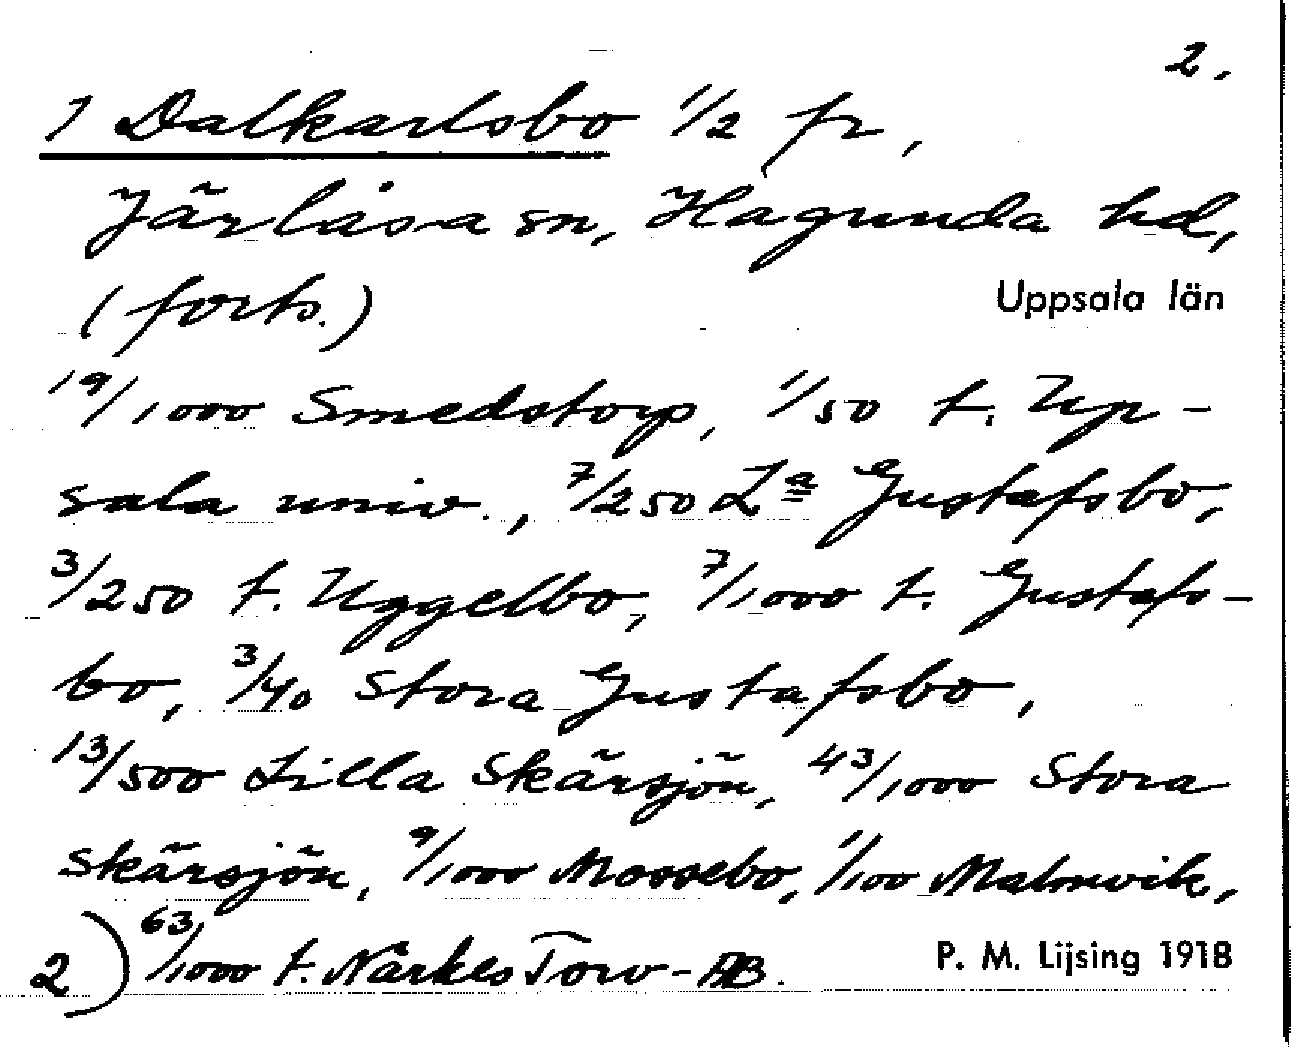 2.
1 Dalkarlsbo 1/2 fr,
Järlåsa sn, Hagunda hd,
(forts.)
Uppsala län
19/1000 Smedstorp, 1/50 t. Up-
sala univ., 7/250 La Gustafsbo,
3/250 t. Uggelbo, 7/1000 t. Gustafs-
bo, 3/40 Stora Gustafsbo,
13/500 Lilla Skärsjön, 43/1000 Stora
Skärsjön, 9/1000 Mossebo, 1/100 Malmvik,
2) 63/1000 t. Närkes Torv-AB.
P. M. Lijsing 1918